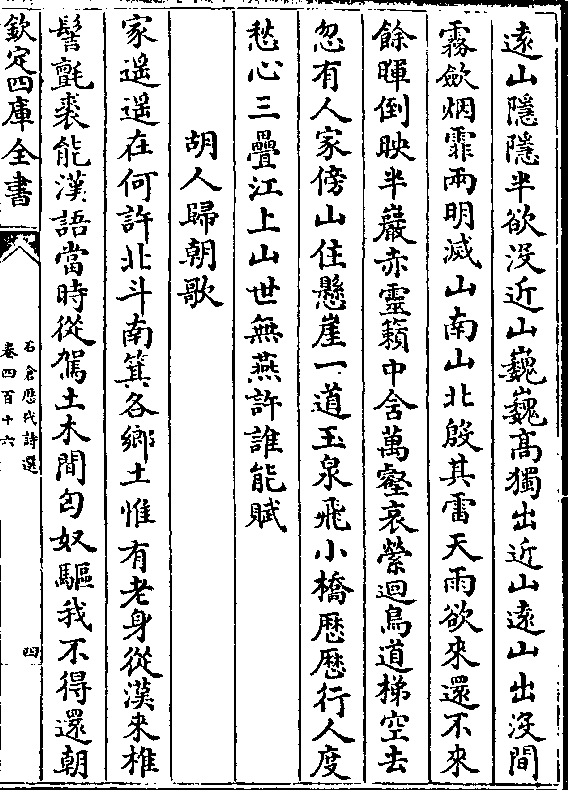 遠山隱隱半欲沒近山巍巍髙獨出近山遠山出沒間
霧歛烟霏兩明滅山南山北殷其雷天雨欲來還不來
餘暉倒映半巖赤靈籟中含萬壑哀縈迴鳥道梯空去
忽有人家傍山住懸崖一道玉泉飛小橋厯厯行人度
愁心三疊江上山世無燕許誰能賦
胡人歸朝歌
家遥遥在何許北斗南箕各鄉土惟有老身從漠來椎
髻氊裘能漢語當時從駕土木間匈奴驅我不得還朝
欽定四庫全書
石倉歴代詩選
卷四百十六
四